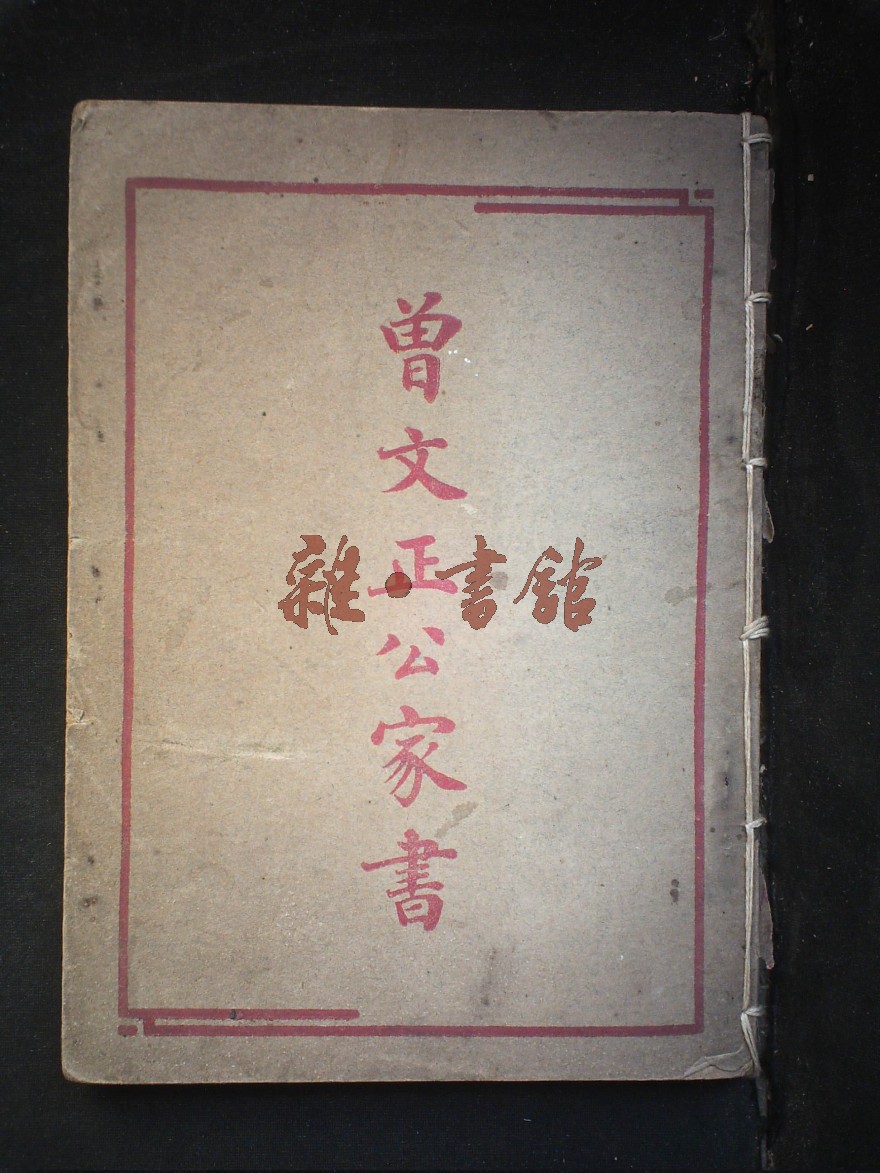 曾文正公家書
雜·書館